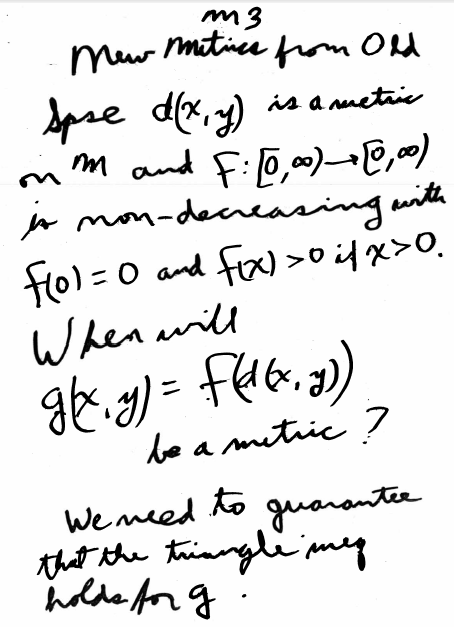 m3
New Metrics from Old
Spse d(x,y) is a metric
on M and f:[0,∞)→[0,∞)
is non-decreasing with
f(0) = 0 and f(x) > 0 if x > 0.
When will
g(x,y) = f(d(x,y))
be a metric?
We need to guarantee
that the triangle ineq
holds for g.